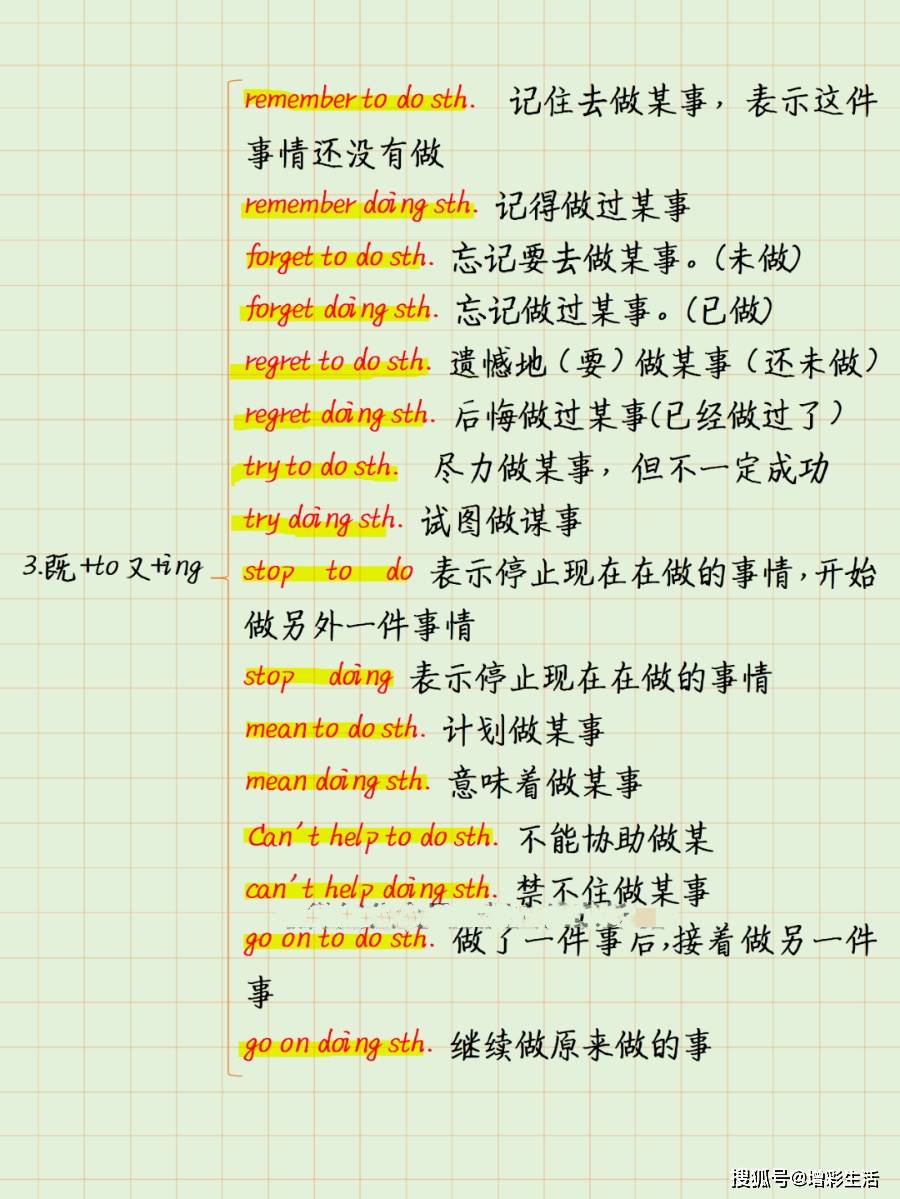 remember to do sth. 记住去做某事，表示这件
事情还没有做
remember doing sth. 记得做过某事
forget to do sth. 忘记要去做某事。(未做)
forget doing sth. 忘记做过某事。(已做)
regret to do sth. 遗憾地（要）做某事（还未做）
regret doing sth. 后悔做过某事(已经做过了）
try to do sth. 尽力做某事，但不一定成功
try doing sth. 试图做谋事
3.既+to又+ing
stop to do 表示停止现在在做的事情,开始
做另外一件事情
stop doing 表示停止现在在做的事情
mean to do sth. 计划做某事
mean doing sth. 意味着做某事
Can't help to do sth. 不能协助做某
can't help doing sth. 禁不住做某事
go on to do sth. 做了一件事后,接着做另一件
事
go on doing sth. 继续做原来做的事
搜狐号@增彩生活